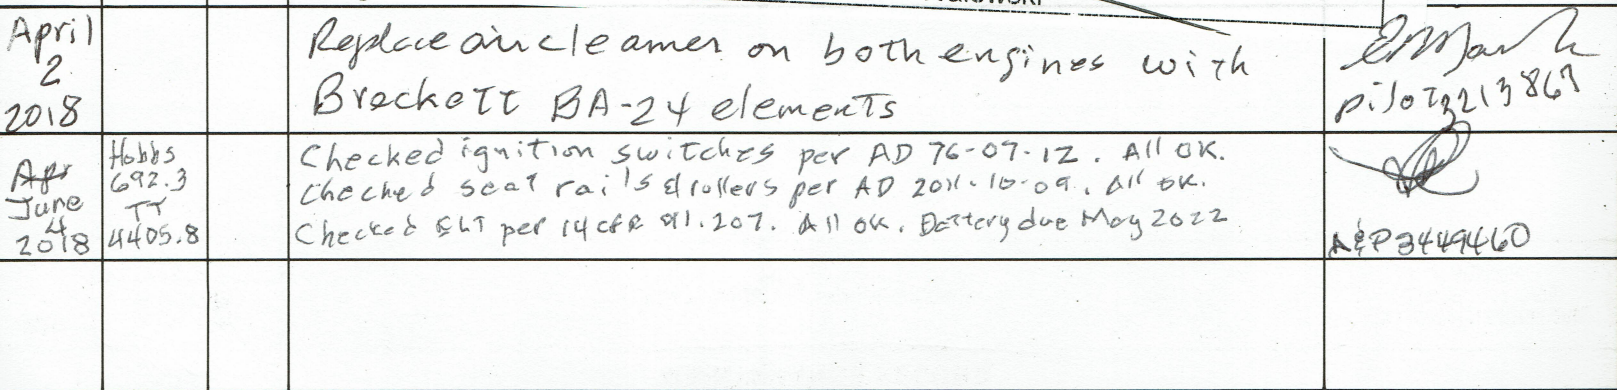 April
2
2018
Replace air cleaner on both engines with
Brackett BA-24 elements
pilot 3213867
Apr
June
4
2018
Hobbs
692.3
TT
4405.8
Checked ignition switches per AD 76-07-12. All OK.
Checked seat rails & rollers per AD 2011-10-09. All OK.
Checked ELT per 14 CFR 91.207. All OK. Battery due May 2022
A&P3449460